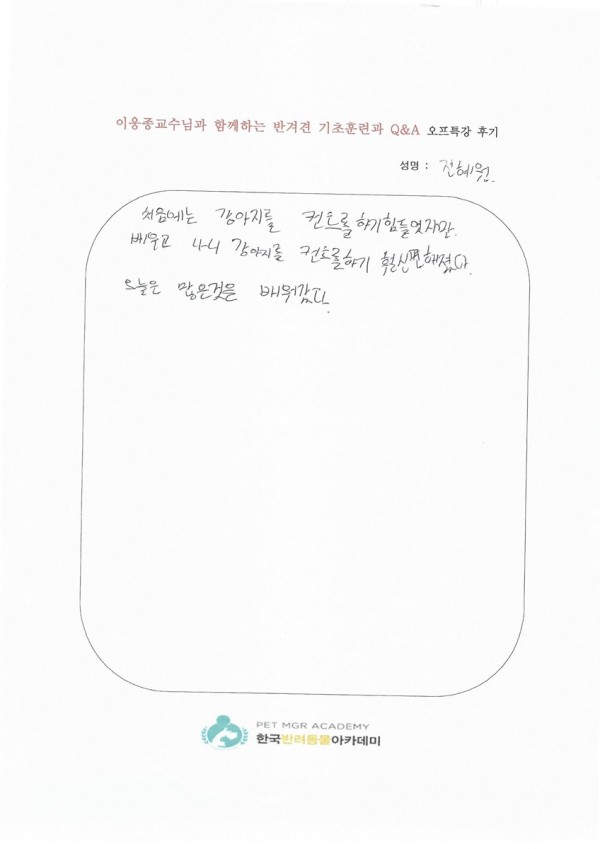 이웅종교수님과 함께하는 반겨견 기초훈련과 Q&A 오프특강 후기
성명 : 전혜원
처음에는 강아지를 컨트롤하기힘들었지만.
배우고 나니 강아지를 컨트롤하기 훨신편해졌다.
오늘은 많은것을 배워갔다.
PET MGR ACADEMY
한국반려동물아카데미